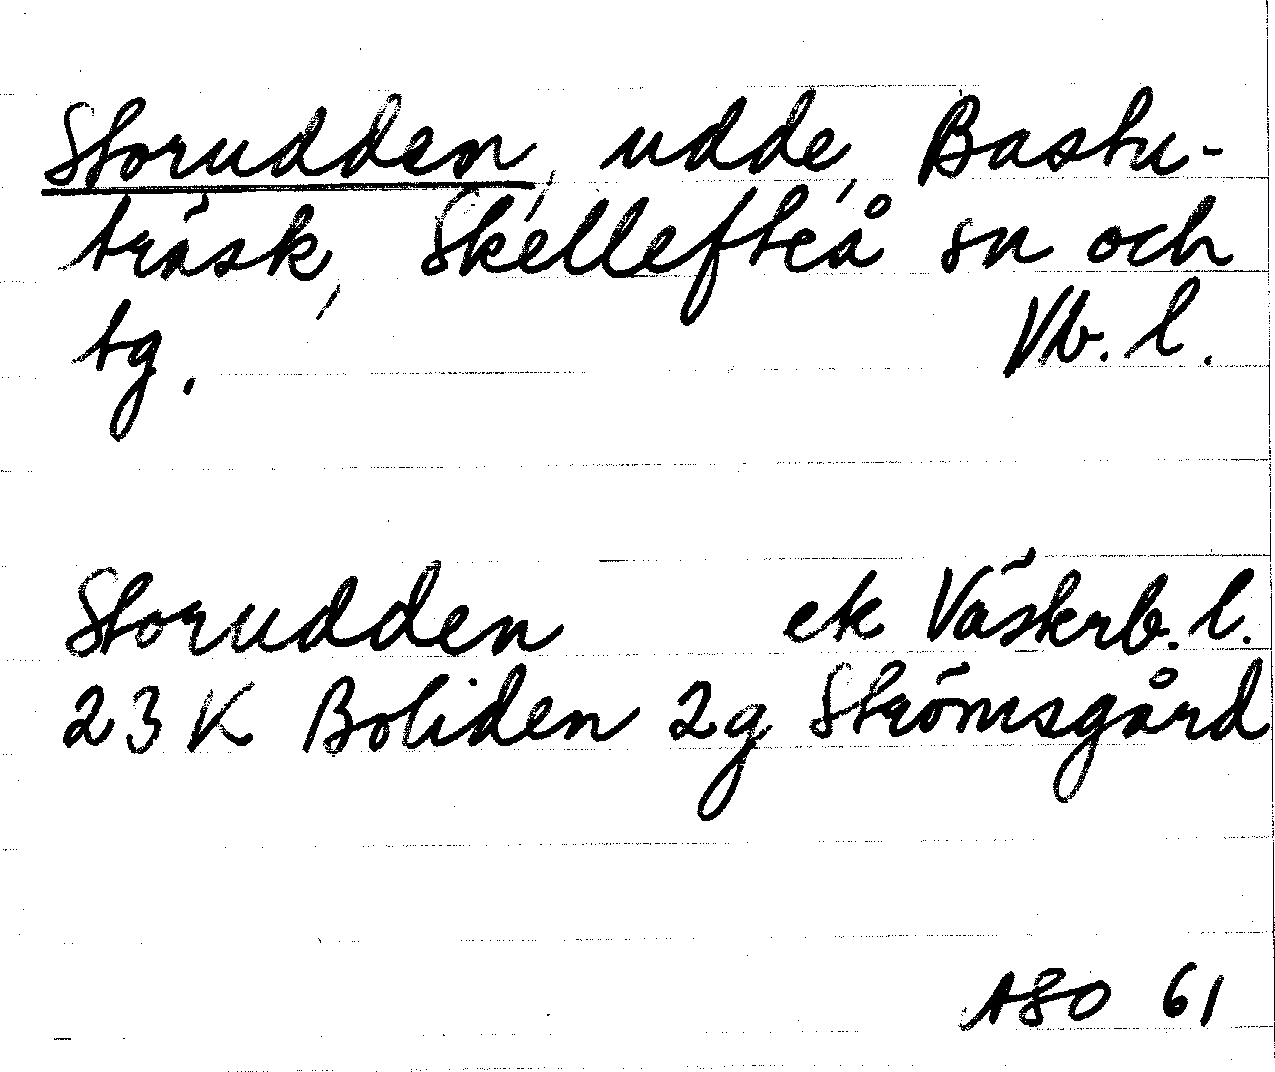 Storudden, udde, Bastu-
träsk, Skellefteå sn och
tg. Vb. l.
Storudden ek Västerb. l.
23 K Boliden 2g Strömsgård
ASO 61